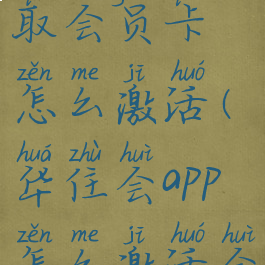 取会员卡
zěn me jī huó
怎么激活（
huá zhù huì
华住会app
zěn me jī huó huì
怎么激活会